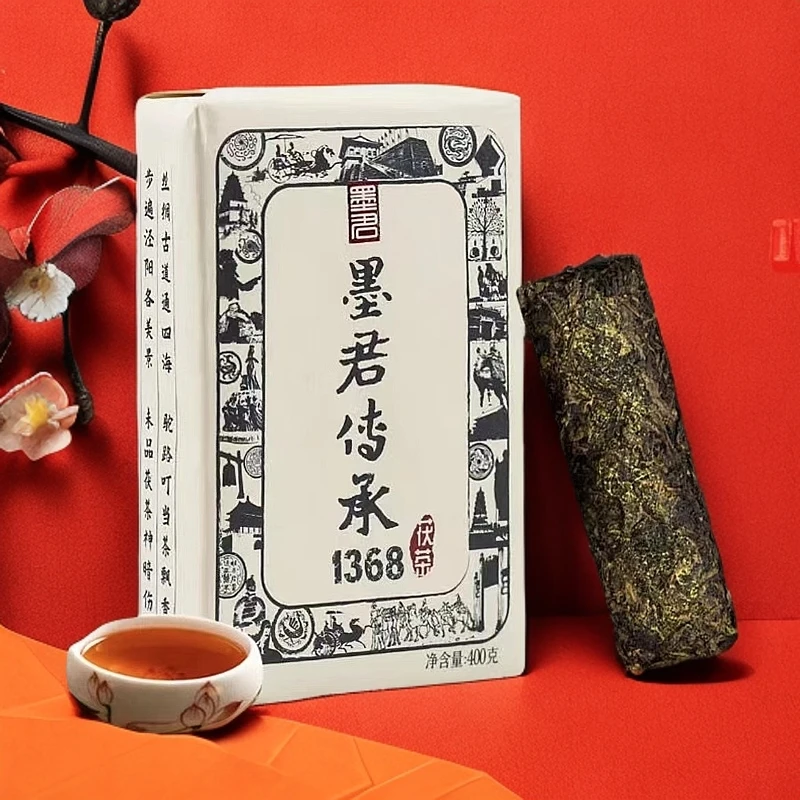 丝绸古道通四海 驼路叮当茶飘香
步遍泾阳各美景 未品茯茶神暗伤
墨君
墨君传承
1368
茯茶
净含量:400克